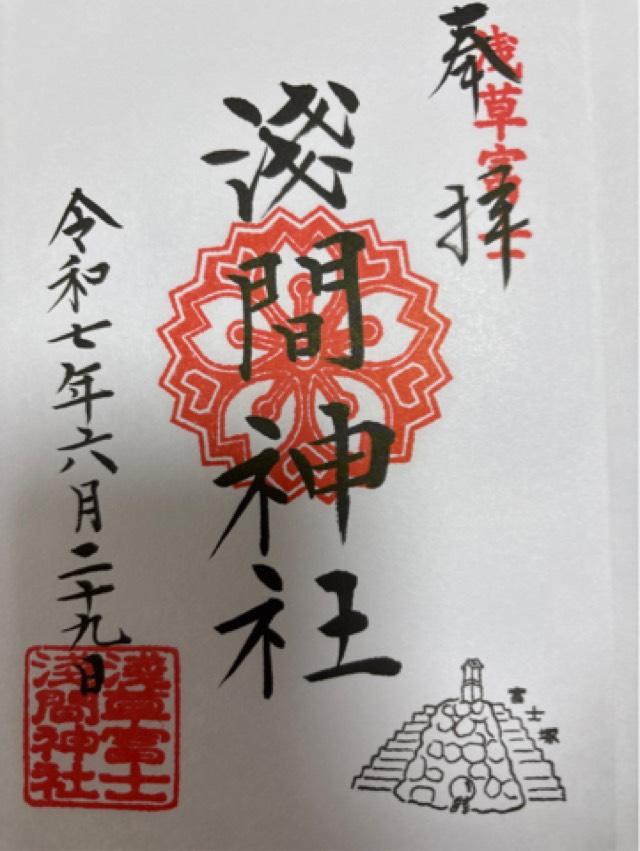 奉拝
浅草富士
淺間神社
令和七年六月二十九日
淺草富士
淺間神社
富士塚